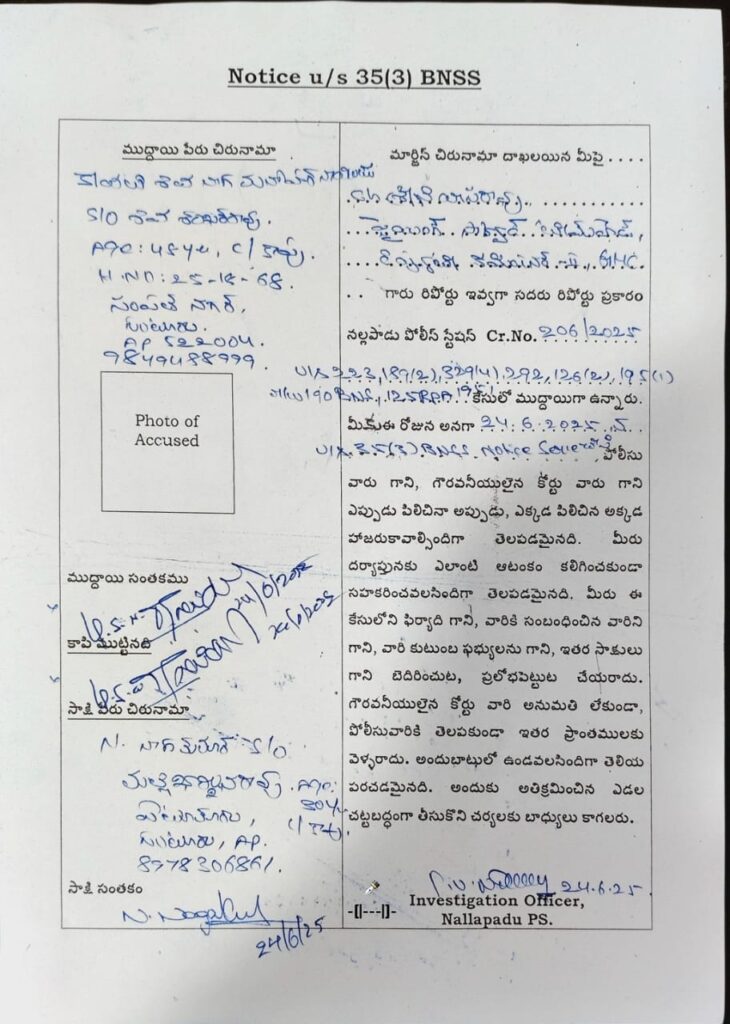 Notice u/s 35(3) BNSS
ముద్దాయి పేరు చిరునామా
S/O శివ శంకరరావు.
Age: 48 yrs, C/ కాపు.
H.NO: 25-18-68.
సంపత్ నగర్,
గుంటూరు.
AP 522004.
9849488999.
Photo of
Accused
ముద్దాయి సంతకము
24/6/2025
కాపి ముట్టినది
24/6/2025
సాక్షి పేరు చిరునామా
N. నాగ కుమార్ S/O
Age:
30 yrs
C/ కాపు.
గుంటూరు, AP.
8978306861.
సాక్షి సంతకం
24/6/25
మార్జిన్ చిరునామా దాఖలయిన మీపై ....
.. గారు రిపోర్టు ఇవ్వగా సదరు రిపోర్టు ప్రకారం
నల్లపాడు పోలీస్ స్టేషన్ Cr.No. 206/2025
U/s 223, 189(2), 329(4), 292, 126(2), 195(1)
r/w 190 BNS, కేసులో ముద్దాయిగా ఉన్నారు.
మీకు ఈ రోజున అనగా 24.6.2025
U/s 35(3) BNSS Notice పోలీసు
వారు గాని, గౌరవనీయులైన కోర్టు వారు గాని
ఎప్పుడు పిలిచినా అప్పుడు, ఎక్కడ పిలిచిన అక్కడ
హాజరుకావాల్సిందిగా తెలపడమైనది. మీరు
దర్యాప్తునకు ఎలాంటి ఆటంకం కలిగించకుండా
సహకరించవలసిందిగా తెలపడమైనది. మీరు ఈ
కేసులోని ఫిర్యాది గాని, వారికి సంబంధించిన వారిని
గాని, వారి కుటుంబ ఫభ్యులను గాని, ఇతర సాక్షులు
గాని బెదిరించుట, ప్రలోభపెట్టుట చేయరాదు.
గౌరవనీయులైన కోర్టు వారి అనుమతి లేకుండా,
పోలీసువారికి తెలపకుండా ఇతర ప్రాంతములకు
వెళ్ళరాదు. అందుబాటులో ఉండవలసిందిగా తెలియ
పరచడమైనది. అందుకు అతిక్రమించిన ఎడల
చట్టబద్ధంగా తీసుకొని చర్యలకు బాధ్యులు కాగలరు.
24.6.25
-[|---|]- Investigation Officer,
Nallapadu PS.